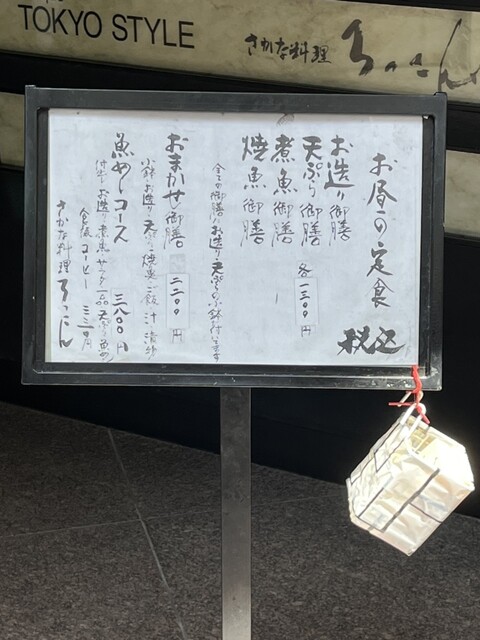 TOKYO STYLE
さかな料理 ろっこん
お昼の定食
税込
お造り御膳
天ぷら御膳 各一三〇〇円
煮魚御膳
焼魚御膳
全ての御膳にお造り 天ぷら 小鉢付いてます
おまかせ御膳 二二〇〇円
小鉢 お造り 天ぷら 焼魚 ご飯 汁 漬物
魚めしコース 三八〇〇円
付き出し お造り 煮魚 サラダ一品 天ぷら 魚めし
食後 コーヒー 三三〇円
さかな料理 ろっこん